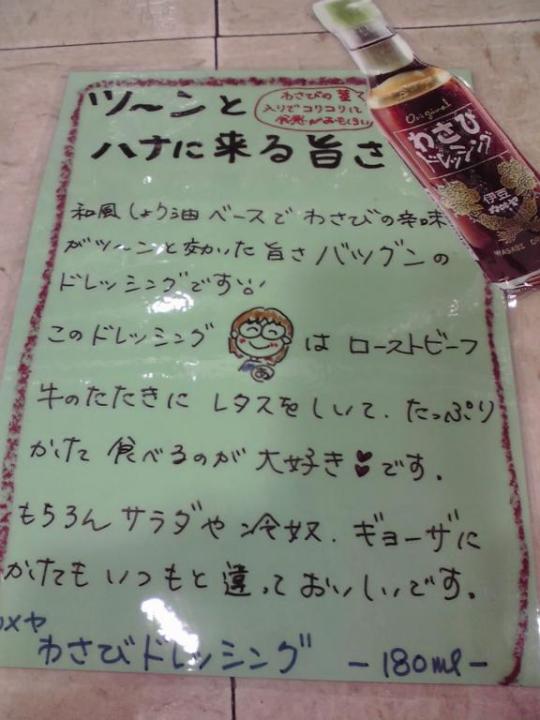 ツ〜ンと
わさびの茎
入りでコリコリして
食感がおもしろい
ハナに来る旨さ
Original
わさび
ドレッシング
伊豆
WASABI
和風しょう油ベースでわさびの辛味
がツ〜ンと効いた旨さバツグンの
ドレッシングです
このドレッシング は ローストビーフ
牛のたたきに レタスをしいて、たっぷり
かけて 食べるのが 大好き♥です。
もちろん サラダや 冷奴、ギョーザに
かけても いつもと 違って おいしいです。
カメヤ
わさびドレッシング -180ml-